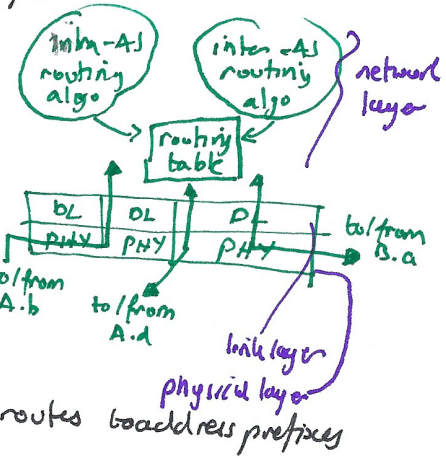 intra-AS
routing
algo
inter-AS
routing
algo
network
layer
routing
table
DL DL DL
PHY PHY PHY
to/from
B.a
o/from
A.b
to/from
A.d
link layer
physical layer
routes to address prefixes